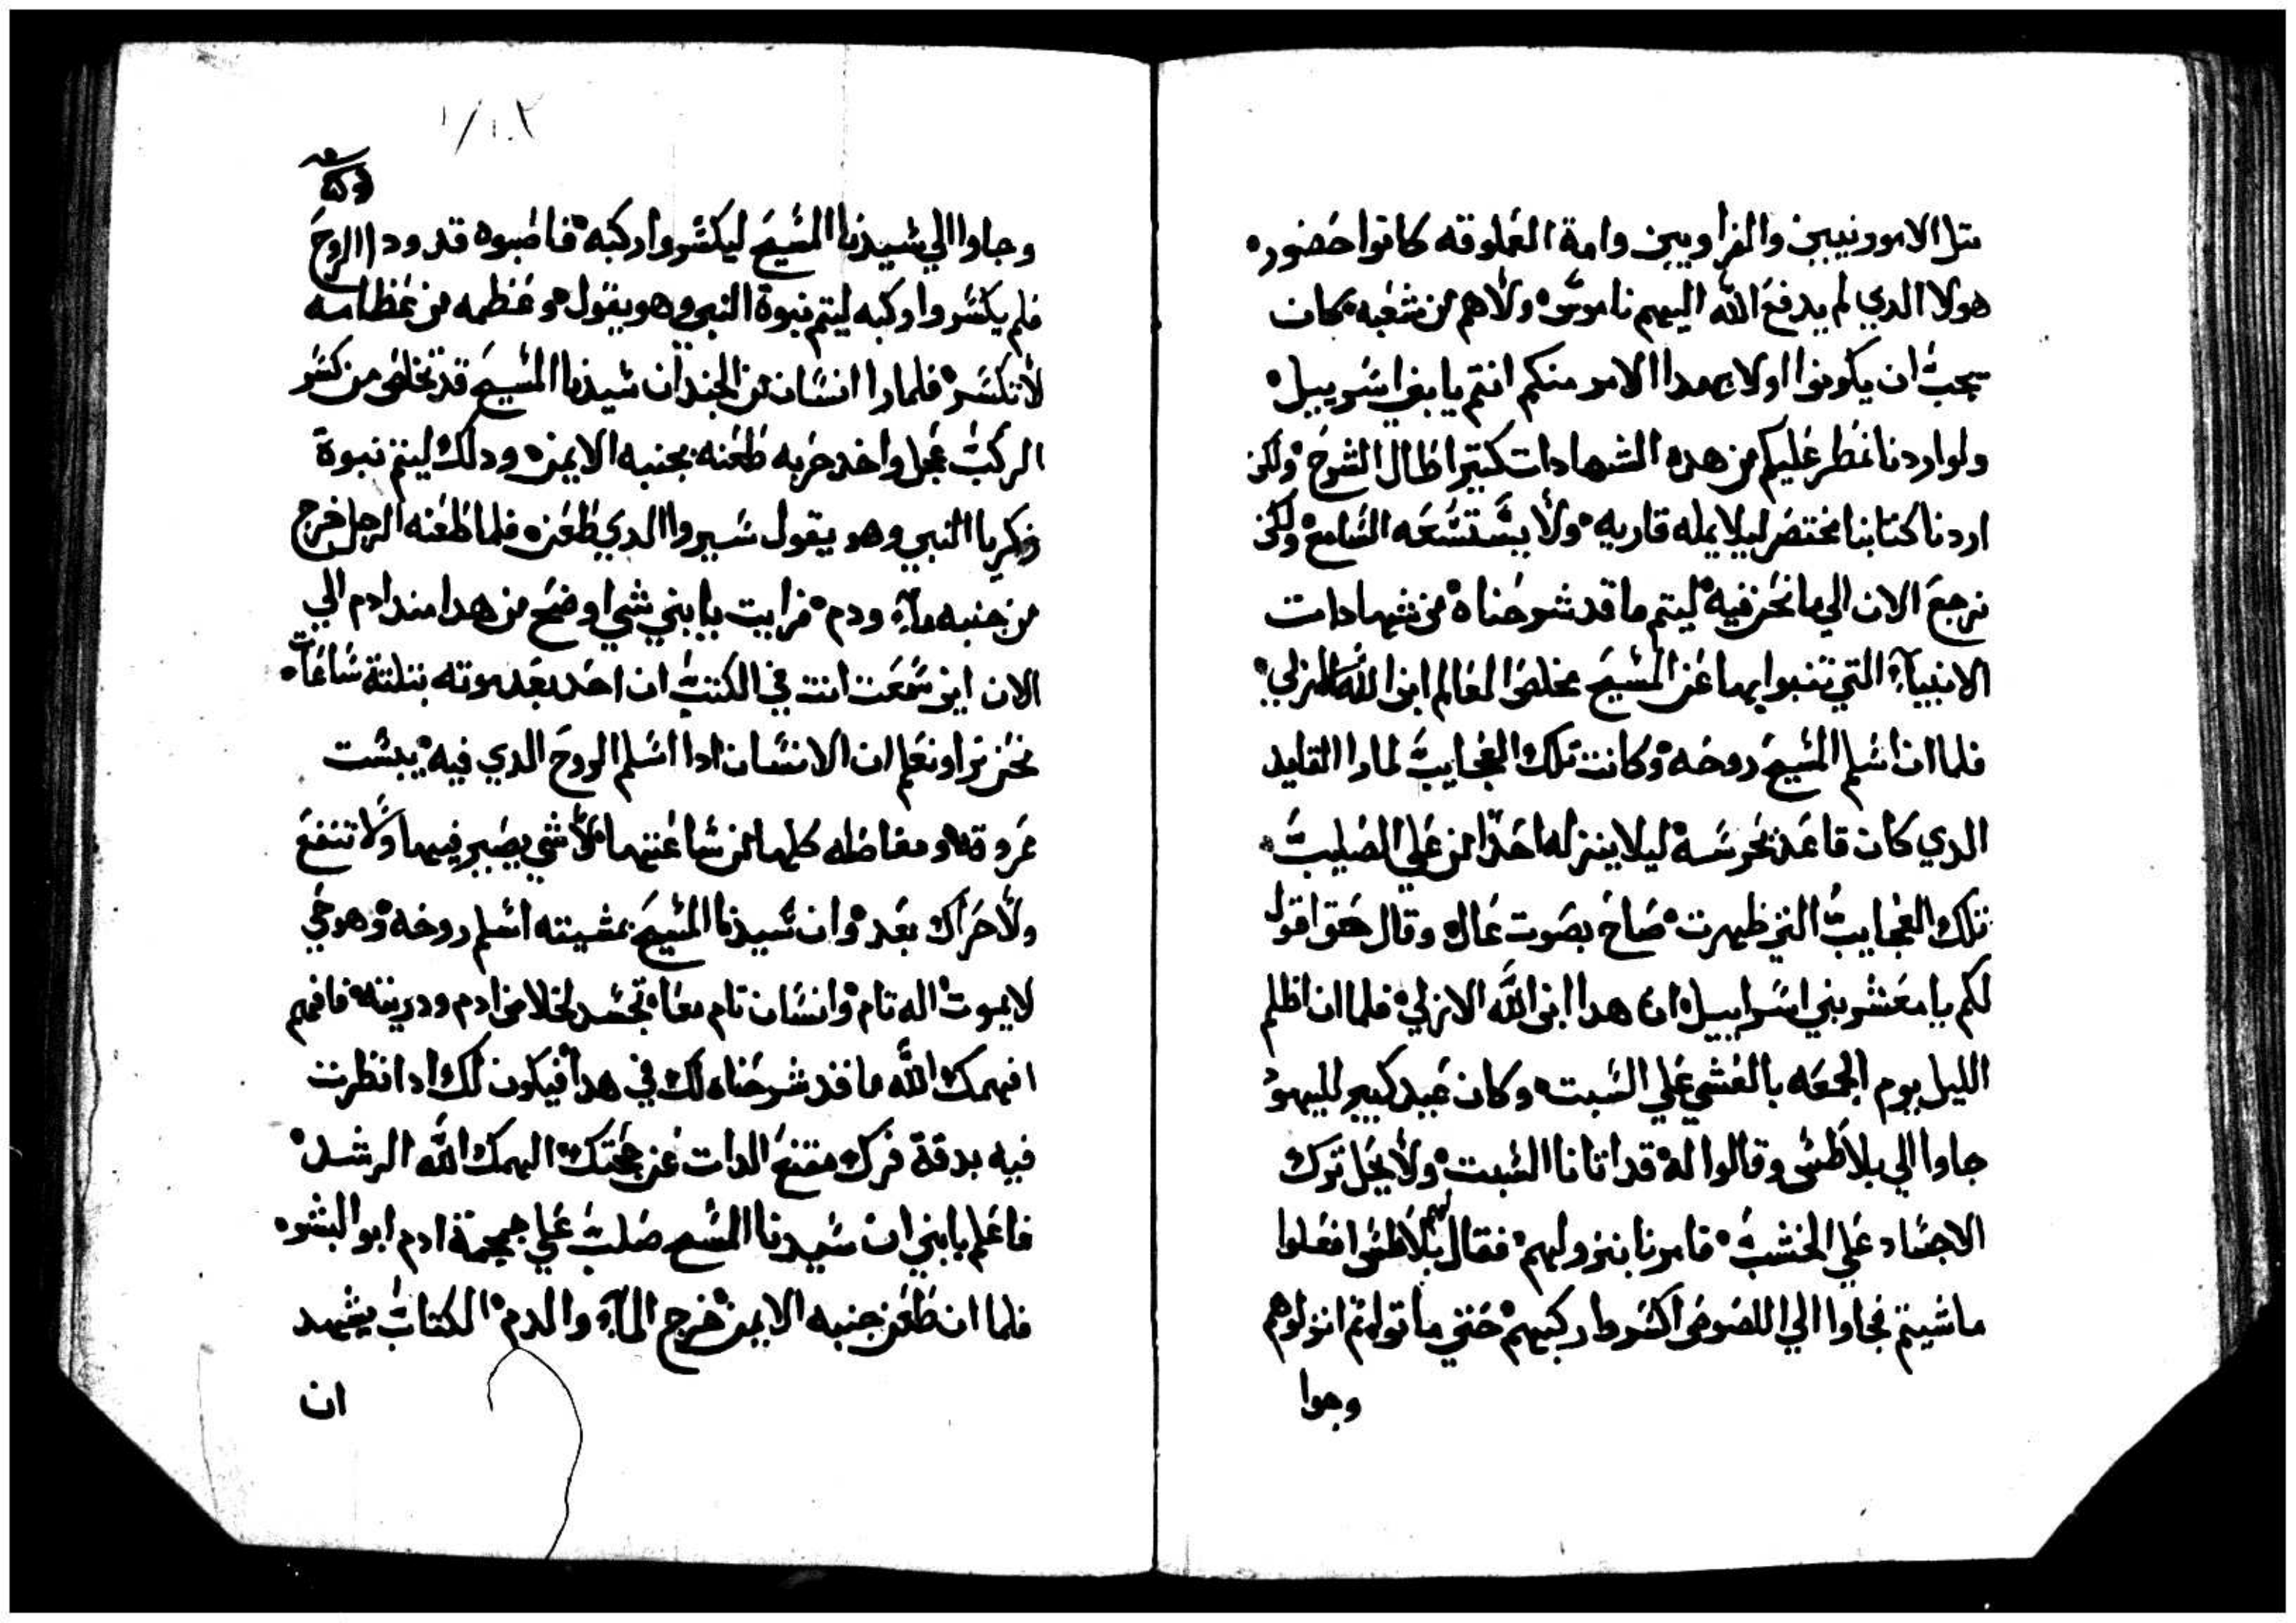 متل الامورنيين والفراويين وامة العملوقه كانوا حضور
هولا الدي لم يدفع الله اليهم ناموس ولا هم من شعبه كان
يجب ان يكونوا اولا بهدا الامر منكم انتم يا بني اسرييل
ولو اردنا نمطر عليكم من هده الشهادات كتير اطال الشرح ولكن
اردنا كتابنا مختصر ليلا يمله قاريه ولا يستشعه السامع ولكن
نرجع الان الي ما نحن فيه ليتم ما قد شرحناه من شهادات
الانبيآء التي تنبوا بها عن المسيح مخلص العالم ابن الله الازلي
فلما ان اسلم المسيح روحه وكانت تلك العجايب لما را القايد
الدي كان قاعد يحرسه ليلا ينزله احدا من علي الصليب
تلك العجايب التي ظهرت صاح بصوت عال وقال حقا اقول
لكم يا معشر بني اسراييل ان هدا ابن الله الازلي فلما ان اظلم
الليل يوم الجمعه بالعشي علي السبت وكان عيد كبير لليهود
جاوا الي بلاطس وقالوا له قد اتانا السبت ولا يحل ترك
الاجساد علي الخشب فامرنا بنزولهم فقال لهم بلاطس افعلوا
ما شيتم فجاوا الي اللصوص اكسروا ركبهم حتي ماتوا تم انزلوهم
وجوا
وجاوا الي سيدنا المسيح ليكسروا ركبه فاصبوه قد ودا الروح
فلم يكسروا ركبه ليتم نبوة النبي وهو يقول وعظمه من عظامه
لا تكسر فلما را انسان من الجند ان سيدنا المسيح قد تخلص من كسر
الركب عجل واخد حربه طعنه بجنبه الايمن ودلك ليتم نبوة
زكريا النبي وهو يقول سيروا الدي طعنوه فلما طعنه الرجل خرج
من جنبه مآء ودم فرايت يا بني شي اوضح من هدا مند ادم الي
الان اين سمعت انت في الكتب ان احد بعد موته بتلتة ساعات
نحن نرا ونعلم ان الانسان ادا اسلم الروح الدي فيه يبست
عروقه ومفاصله كلها من ساعتها لا شي يصير فيها ولا تنفع
ولا حراك بعد وان سيدنا المسيح بمشيته اسلم روحه وهو حي
لا يموت اله تام وانسان تام معا تجسد لخلاص ادم ودريته فافهم
افهمك الله ما قد شرحناه لك في هدا فيكون لك ادا نظرت
فيه بدقة فرك مقنع الدات عن حجتك الهمك الله الرشد
فاعلم يا بني ان سيدنا المسيح صلب علي جمجمة ادم ابو البشر
فلما ان طعن جنبه الايمن خرج المآء والدم الكتاب يشهد
ان